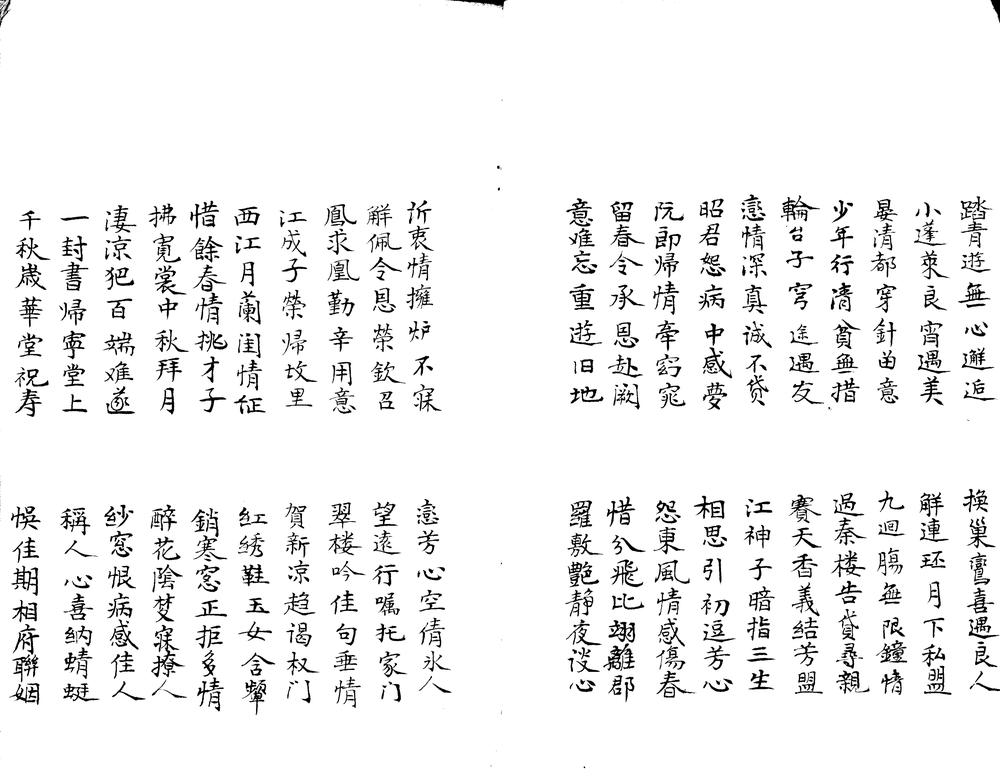 踏青遊無心邂逅
換巢鸞喜遇良人
小蓬萊良宵遇美
解連环月下私盟
晏清都穿針曲意
九迴腸無限鐘情
少年行清貧無措
過秦楼告貸尋親
輪台子穷途遇友
賽天香義結芳盟
戀情深真诚不贷
江神子暗指三生
昭君怨病中感夢
相思引初逗芳心
阮郎帰情牵窈窕
怨東風情感傷春
留春令承恩赴阙
惜分飛比翊離郡
意难忘重遊旧地
羅敷艷静夜谈心
訴衷情擁炉不寐
戀芳心空倩氷人
解佩令恩榮欽召
望遠行嘱托家门
鳳求凰勤辛用意
翠楼吟佳句垂情
江成子榮帰故里
賀新凉趋谒权门
西江月蘭闺情怔
红绣鞋玉女含颦
惜餘春情挑才子
銷寒窓正拒多情
拂霓裳中秋拜月
醉花陰梦寐撩人
凄涼犯百端难遂
纱窓恨病感佳人
一封書帰寧堂上
稱人心喜纳蜻蜓
千秋歲華堂祝寿
悮佳期相府聯姻